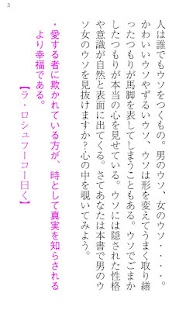 人は誰でもウソをつくもの。男のウソ、女のウソ・・・・。
かわいいウソやずるいウソ、ウソは形を変えてうまく取り繕
ったつもりが馬脚を表してしまうこともある。ウソでごまか
したつもりが本当の心を見せている。ウソには隠された性格
や意識が自然と表面に出てくる。さてあなたは本書で男のウ
ソ女のウソを見抜けますか？心の中を覗いてみよう。
・愛する者に欺かれている方が、時として真実を知らされる
より幸福である。
【ラ・ロシュフーコー曰く】